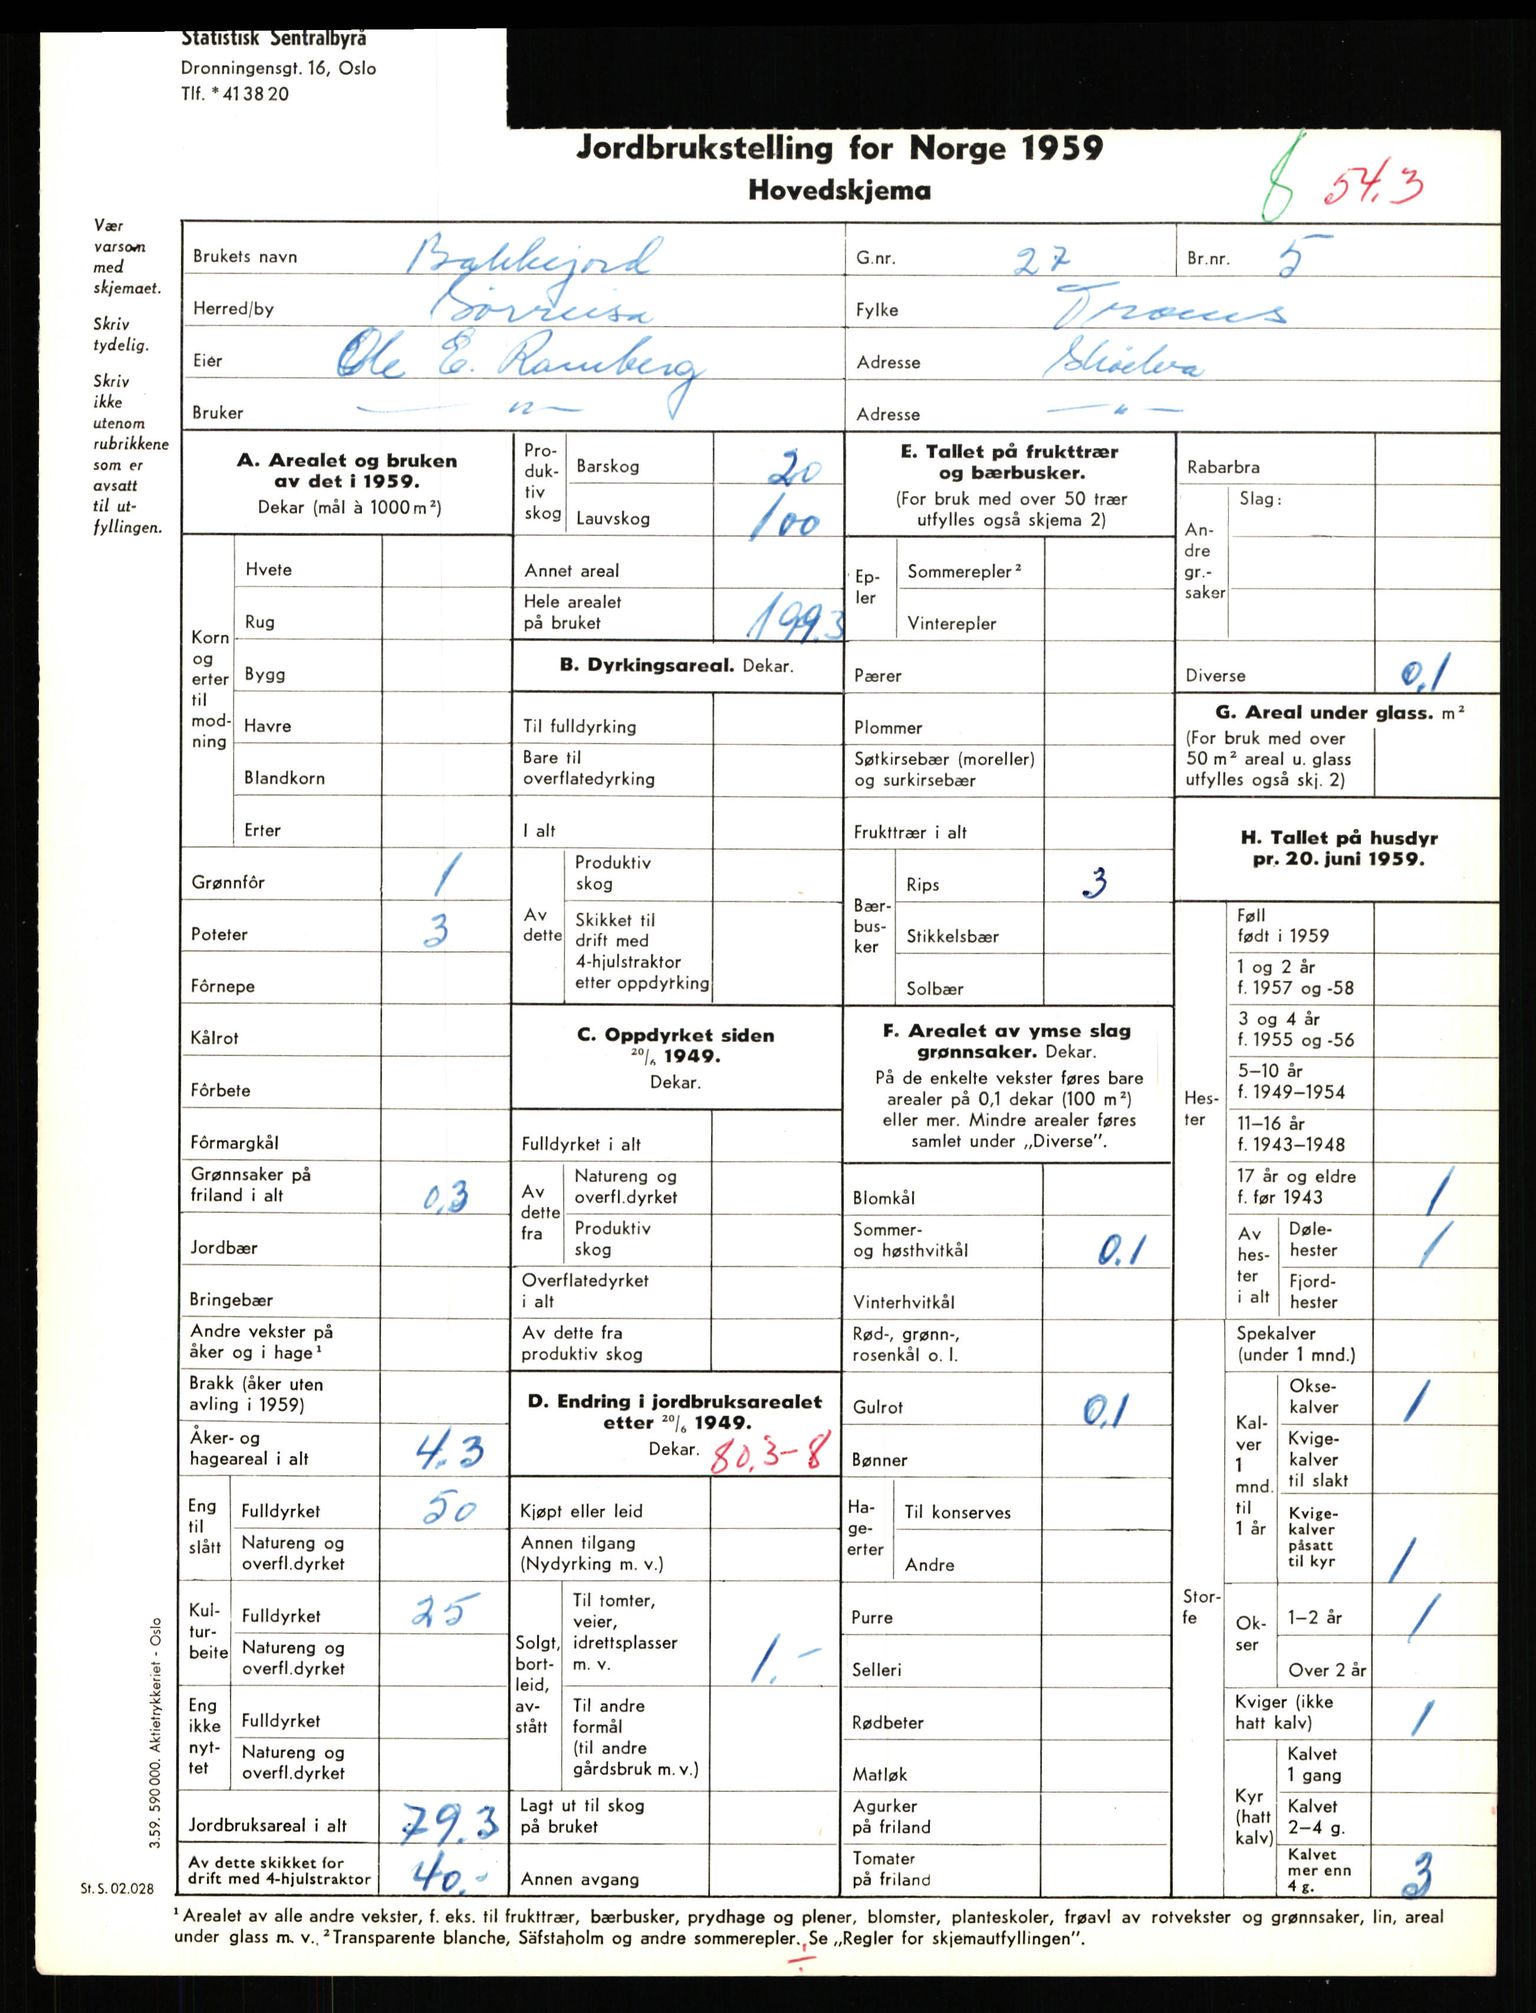 Statistisk Sentralbyrå
Dronningensgt. 16, Oslo
Tlf. * 41 38 20
Jordbrukstelling for Norge 1959
Hovedskjema
8 54.3
Vær
varsom
med
skjemaet.
Skriv
tydelig.
Skriv
ikke
utenom
rubrikkene
som er
avsatt
til ut-
fyllingen.
Brukets navn Bakkejord G.nr. 27 Br.nr. 5
Herred/by Sørreisa Fylke Troms
Eier Ole E. Ramberg Adresse Skøelva
Bruker — " — Adresse — " —
A. Arealet og bruken
av det i 1959.
Dekar (mål à 1000 m²)
Korn
og
erter
til
mod-
ning
Hvete
Rug
Bygg
Havre
Blandkorn
Erter
Grønnfôr 1
Poteter 3
Fôrnepe
Kålrot
Fôrbete
Fôrmargkål
Grønnsaker på
friland i alt 0,3
Jordbær
Bringebær
Andre vekster på
åker og i hage¹
Brakk (åker uten
avling i 1959)
Åker- og
hageareal i alt 4.3
Eng
til
slått
Fulldyrket 50
Natureng og
overfl.dyrket
Kul-
tur-
beite
Fulldyrket 25
Natureng og
overfl.dyrket
Eng
ikke
nyt-
tet
Fulldyrket
Natureng og
overfl.dyrket
Jordbruksareal i alt 79.3
Av dette skikket for
drift med 4-hjulstraktor 40.-
Pro-
duk-
tiv
skog
Barskog 20
Lauvskog 100
Annet areal
Hele arealet
på bruket 199.3
B. Dyrkingsareal. Dekar.
Til fulldyrking
Bare til
overflatedyrking
I alt
Av
dette
Produktiv
skog
Skikket til
drift med
4-hjulstraktor
etter oppdyrking
C. Oppdyrket siden
20/6 1949.
Dekar.
Fulldyrket i alt
Av
dette
fra
Natureng og
overfl.dyrket
Produktiv
skog
Overflatedyrket
i alt
Av dette fra
produktiv skog
D. Endring i jordbruksarealet
etter 20/6 1949.
Dekar. 80.3-8
Kjøpt eller leid
Annen tilgang
(Nydyrking m. v.)
Solgt,
bort-
leid,
av-
stått
Til tomter,
veier,
idrettsplasser
m. v. 1.-
Til andre
formål
(til andre
gårdsbruk m. v.)
Lagt ut til skog
på bruket
Annen avgang
E. Tallet på frukttrær
og bærbusker.
(For bruk med over 50 trær
utfylles også skjema 2)
Ep-
ler
Sommerepler²
Vinterepler
Pærer
Plommer
Søtkirsebær (moreller)
og surkirsebær
Frukttrær i alt
Bær-
bus-
ker
Rips 3
Stikkelsbær
Solbær
F. Arealet av ymse slag
grønnsaker. Dekar.
På de enkelte vekster føres bare
arealer på 0,1 dekar (100 m²)
eller mer. Mindre arealer føres
samlet under „Diverse”.
Blomkål
Sommer-
og høsthvitkål 0.1
Vinterhvitkål
Rød-, grønn-,
rosenkål o. l.
Gulrot 0,1
Bønner
Ha-
ge-
erter
Til konserves
Andre
Purre
Selleri
Rødbeter
Matløk
Agurker
på friland
Tomater
på friland
Rabarbra
An-
dre
gr.-
saker
Slag:
Diverse 0,1
G. Areal under glass. m²
(For bruk med over
50 m² areal u. glass
utfylles også skj. 2)
H. Tallet på husdyr
pr. 20. juni 1959.
Hes-
ter
Føll
født i 1959
1 og 2 år
f. 1957 og -58
3 og 4 år
f. 1955 og -56
5–10 år
f. 1949–1954
11–16 år
f. 1943–1948
17 år og eldre
f. før 1943 1
Av
hes-
ter
i alt
Døle-
hester 1
Fjord-
hester
Stor-
fe
Spekalver
(under 1 mnd.)
Kal-
ver
1
mnd.
til
1 år
Okse-
kalver 1
Kvige-
kalver
til slakt
Kvige-
kalver
påsatt
til kyr 1
Ok-
ser
1–2 år 1
Over 2 år
Kviger (ikke
hatt kalv) 1
Kyr
(hatt
kalv)
Kalvet
1 gang
Kalvet
2–4 g.
Kalvet
mer enn
4 g. 3
3.59. 590 000. Aktietrykkeriet - Oslo
St. S. 02.028
¹ Arealet av alle andre vekster, f. eks. til frukttrær, bærbusker, prydhage og plener, blomster, planteskoler, frøavl av rotvekster og grønnsaker, lin, areal
under glass m. v. ² Transparente blanche, Säfstaholm og andre sommerepler. Se „Regler for skjemautfyllingen”.